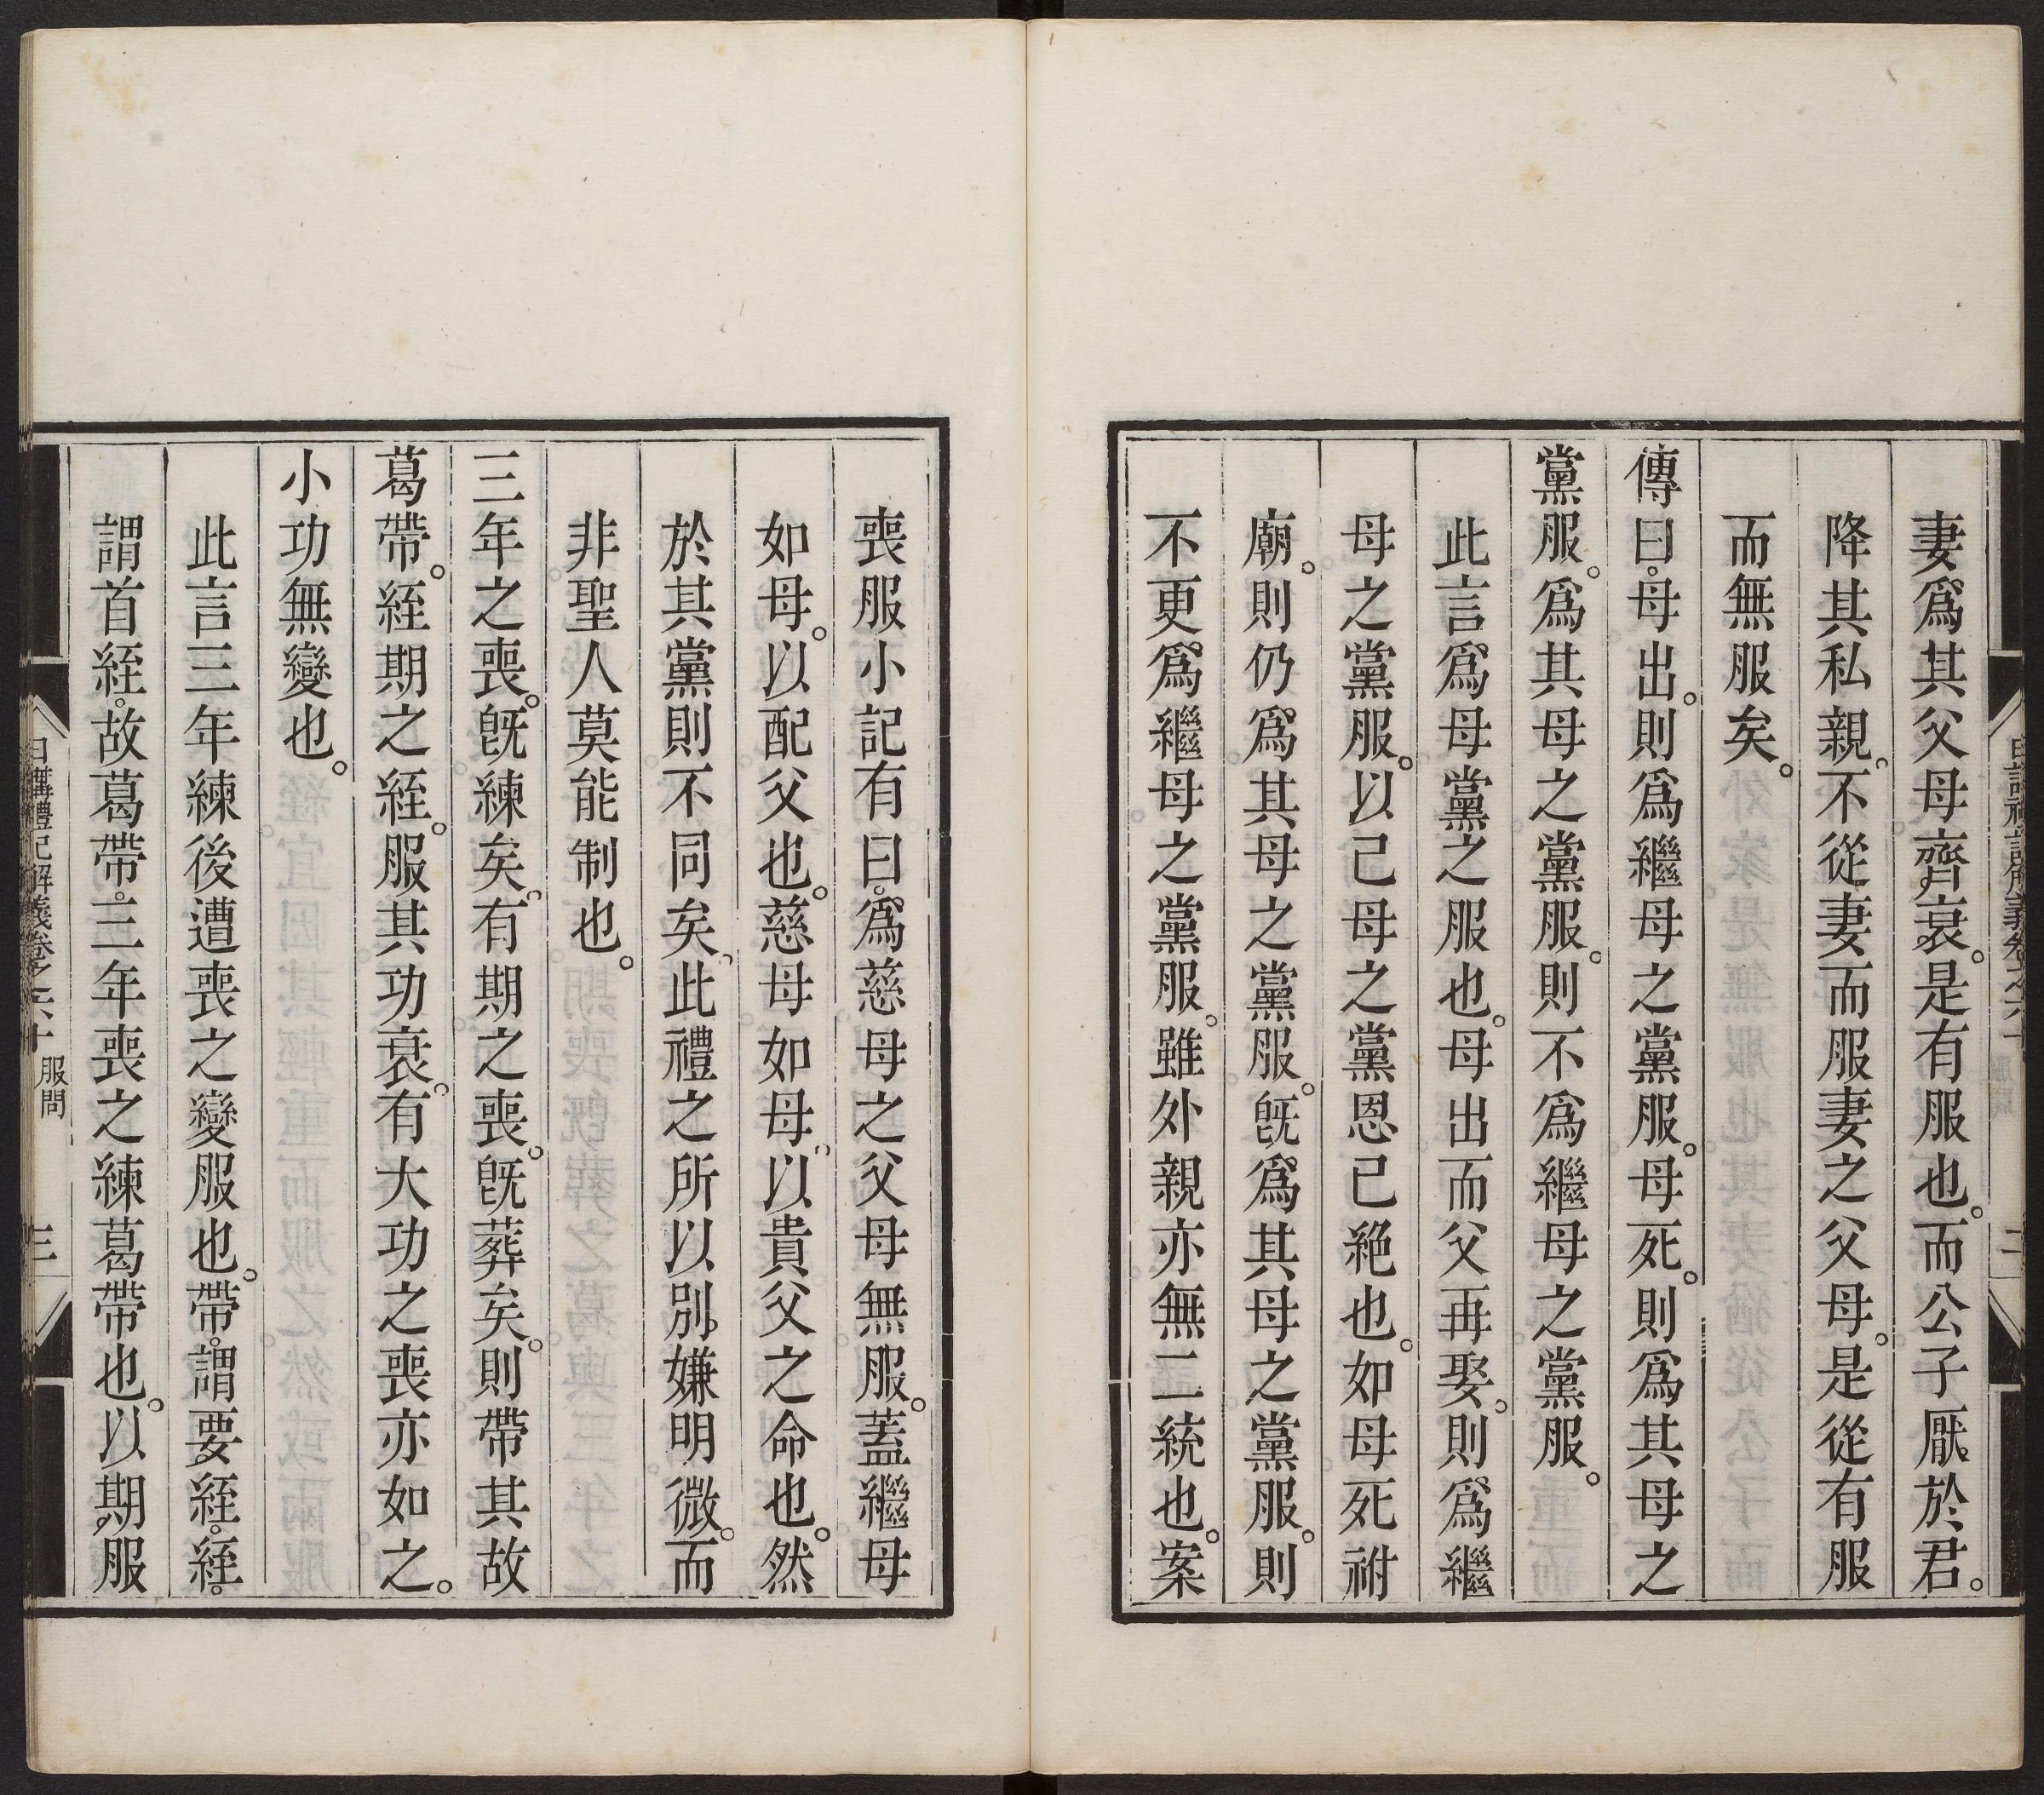 妻爲其父母齊衰。是有服也。而公子厭於君。
降其私親。不從妻而服妻之父母。是從有服
而無服矣。
傳曰。母出。則爲繼母之黨服。母死。則爲其母之
黨服。爲其母之黨服。則不爲繼母之黨服。
此言爲母黨之服也。母出而父再娶。則爲繼
母之黨服。以己母之黨恩已絶也。如母死祔
廟。則仍爲其母之黨服。旣爲其母之黨服。則
不更爲繼母之黨服。雖外親亦無二統也。案
喪服小記有曰。爲慈母之父母無服。蓋繼母
如母。以配父也。慈母如母。以貴父之命也。然
於其黨則不同矣。此禮之所以別嫌明微。而
非聖人莫能制也。
三年之喪。旣練矣。有期之喪。旣葬矣。則帶其故
葛帶。絰期之絰。服其功衰。有大功之喪亦如之。
小功無變也。
此言三年練後遭喪之變服也。帶。謂要絰。絰。
謂首絰。故葛帶。三年喪之練葛帶也。以期服
日講禮記解義卷之六十 服問 三